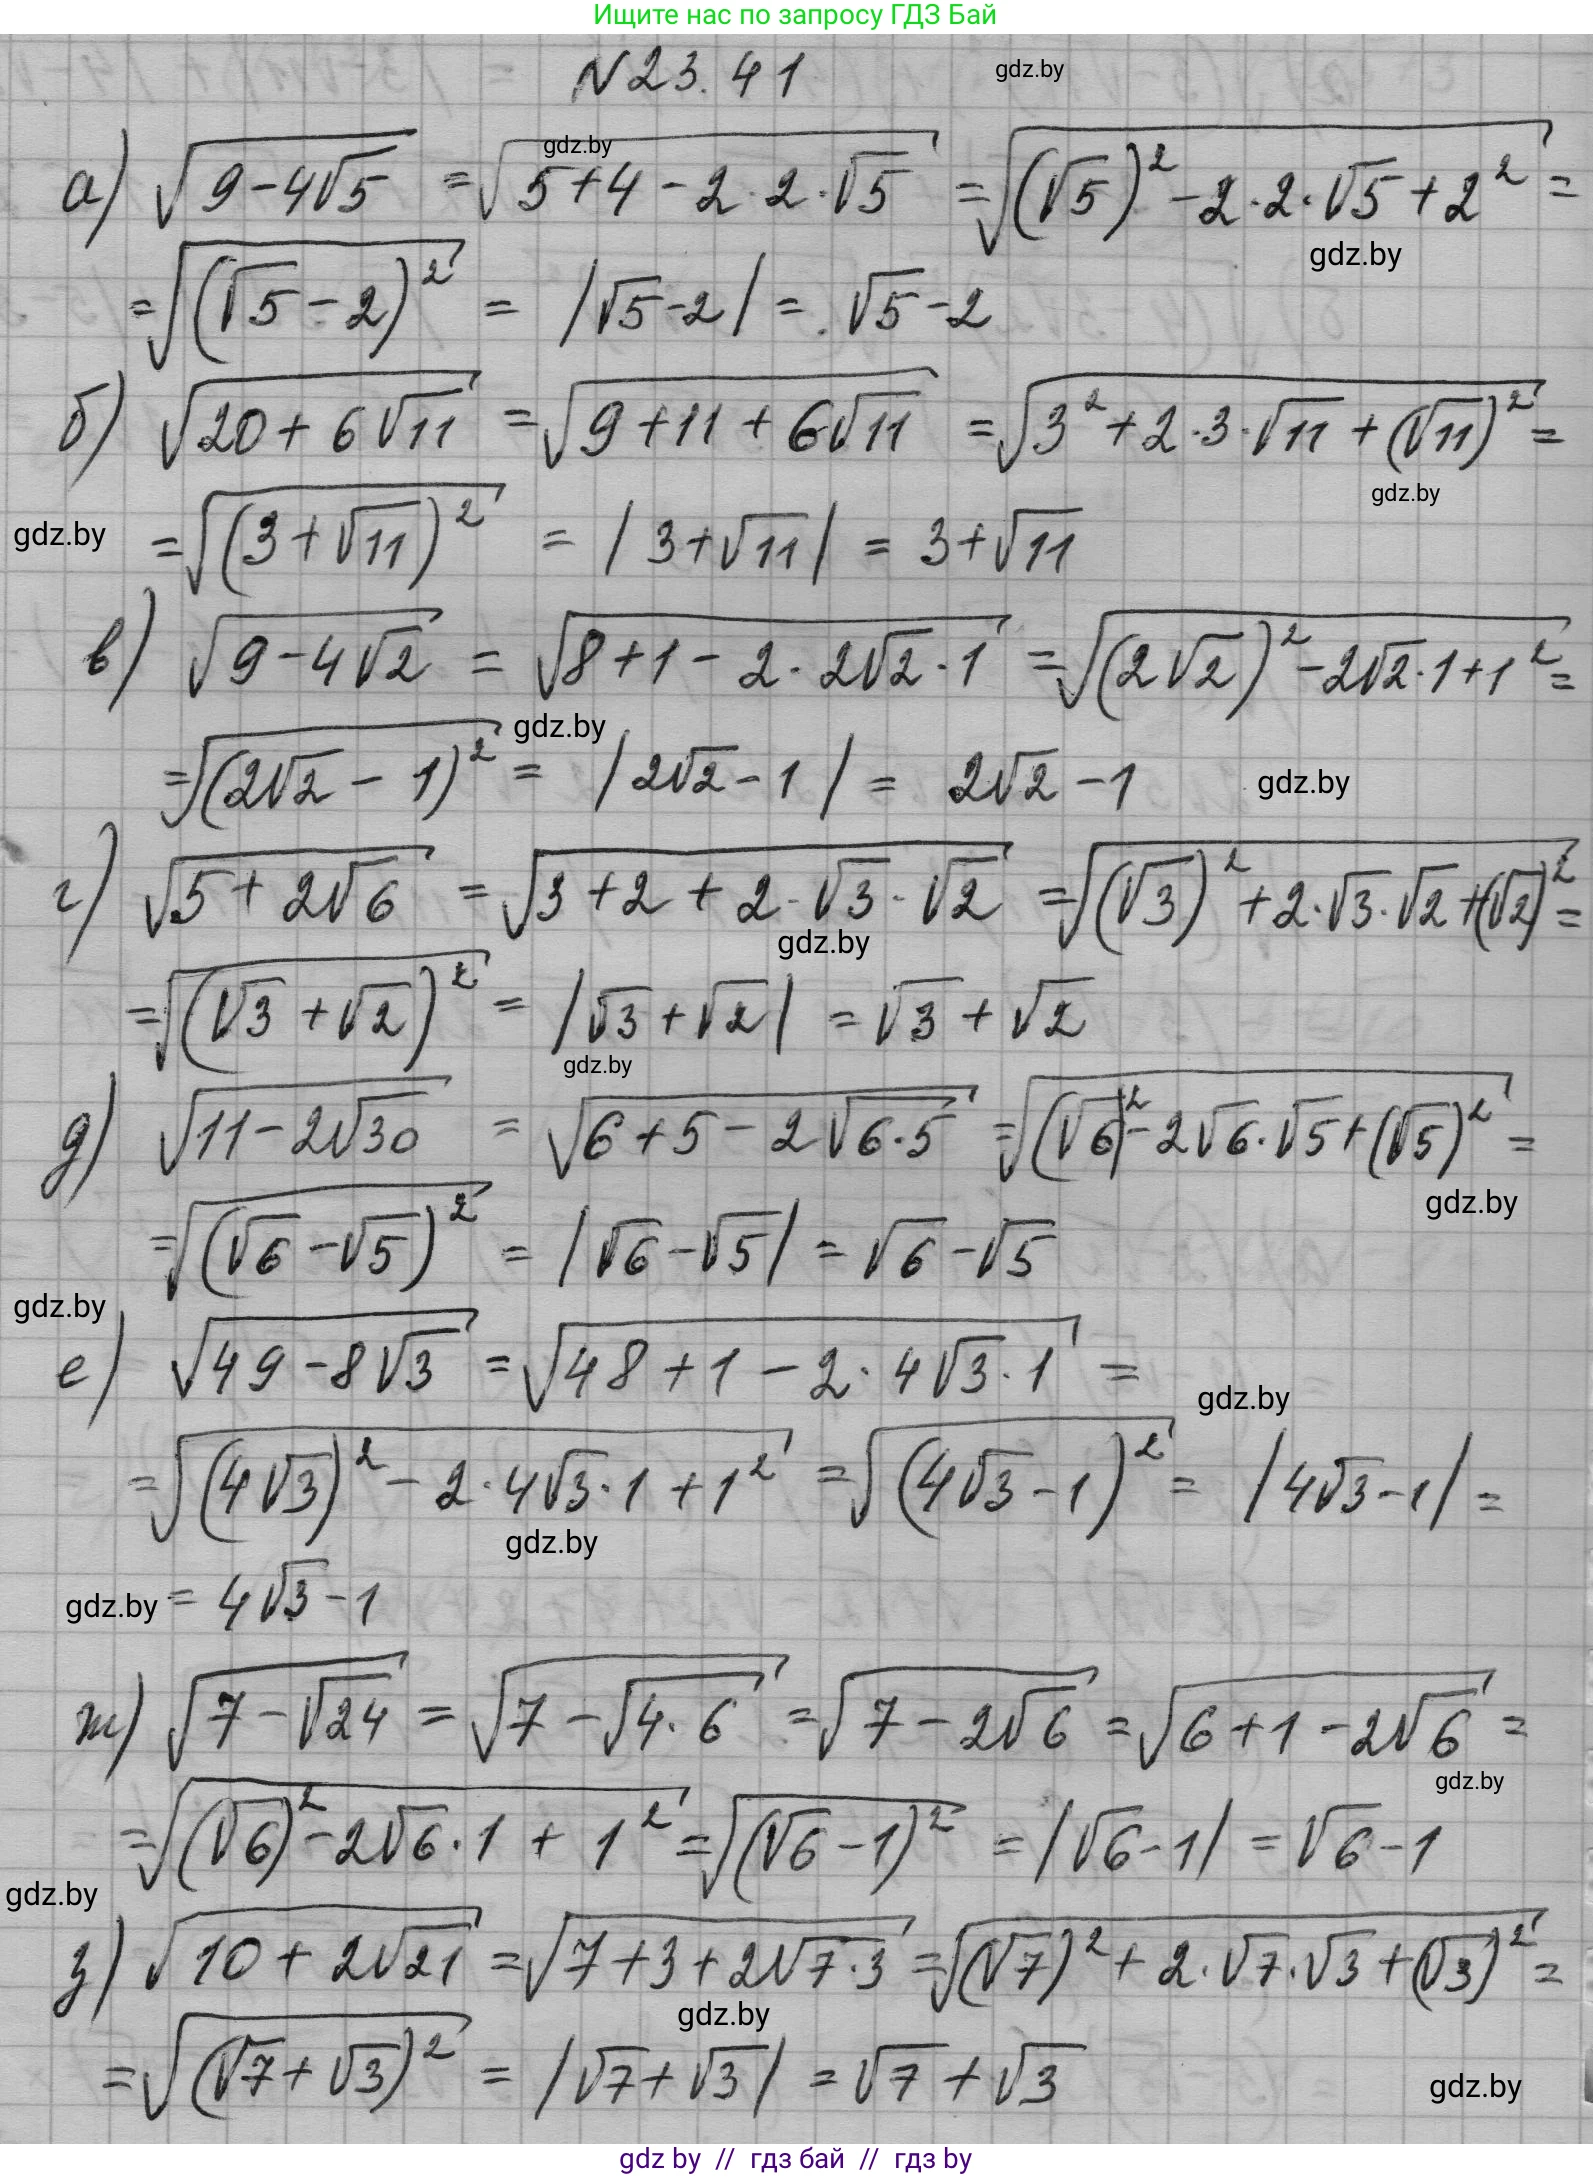 Ищите нас по запросу ГДЗ Бай
N23.41 gdz.by
а) √(9-4√5) = √(5+4-2·2·√5) = √((√5)²-2·2·√5+2²) =
gdz.by
gdz.by
= √((√5-2)²) = |√5-2| = √5-2
б) √(20+6√11) = √(9+11+6√11) = √(3²+2·3·√11+(√11)²) =
gdz.by
gdz.by = √((3+√11)²) = |3+√11| = 3+√11
в) √(9-4√2) = √(8+1-2·2√2·1) = √((2√2)²-2√2·1+1²) =
gdz.by
= √((2√2-1)²) = |2√2-1| = 2√2-1 gdz.by
г) √(5+2√6) = √(3+2+2·√3·√2) = √((√3)²+2·√3·√2+(√2)²) =
gdz.by
= √((√3+√2)²) = |√3+√2| = √3+√2
gdz.by
д) √(11-2√30) = √(6+5-2√(6·5)) = √((√6)²-2√6·√5+(√5)²) =
gdz.by
= √((√6-√5)²) = |√6-√5| = √6-√5
gdz.by
е) √(49-8√3) = √(48+1-2·4√3·1) =
gdz.by
= √((4√3)²-2·4√3·1+1²) = √((4√3-1)²) = |4√3-1| =
gdz.by
gdz.by = 4√3-1
ж) √(7-√24) = √(7-√(4·6)) = √(7-2√6) = √(6+1-2√6) =
gdz.by
= √((√6)²-2√6·1+1²) = √((√6-1)²) = |√6-1| = √6-1
gdz.by
з) √(10+2√21) = √(7+3+2√(7·3)) = √((√7)²+2·√7·√3+(√3)²) =
gdz.by
= √((√7+√3)²) = |√7+√3| = √7+√3
gdz.by
gdz by // гдз бай // гдз by